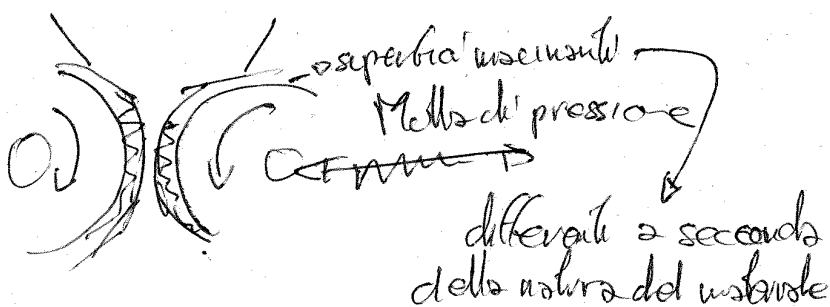 superfici macinanti
Molla di pressione
differenti a seconda
della natura del materiale